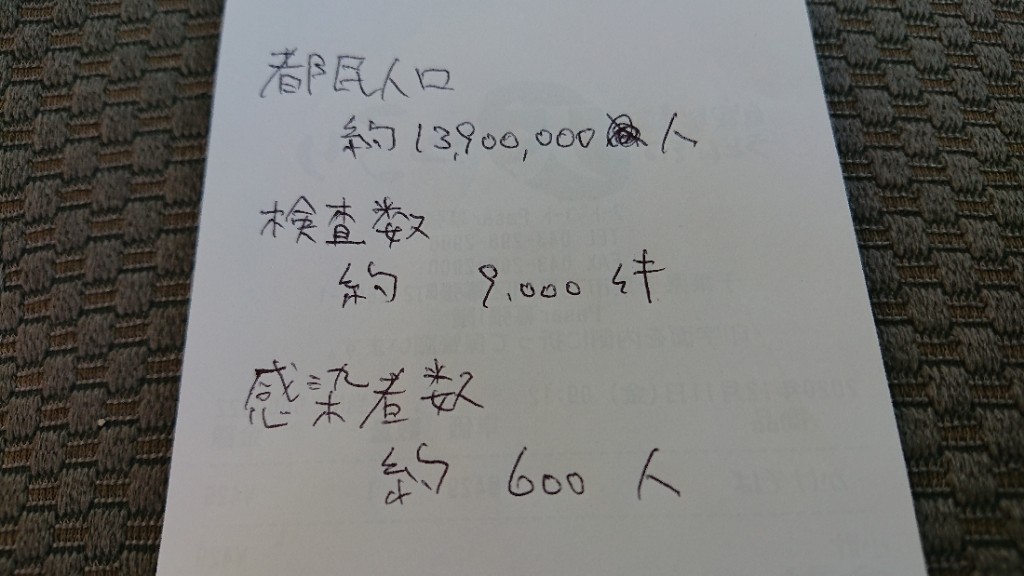 都民人口
約13,900,000人
検査数
約 9,000 件
感染者数
約 600 人